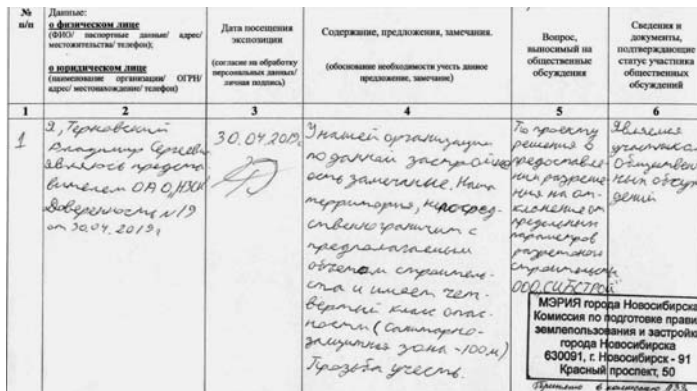 №
п/п
Данные:
о физическом лице
(ФИО/ паспортные данные/ адрес/
местожительства/ телефон);
о юридическом лице
(наименование организации/ ОГРН/
адрес/ местонахождение/ телефон)
Дата посещения
экспозиции
(согласие на обработку
персональных данных/
личная подпись)
Содержание, предложения, замечания.
(обоснование необходимости учесть данное
предложение, замечание)
Вопрос,
выносимый на
общественные
обсуждения
Сведения и
документы,
подтверждающие
статус участника
общественных
обсуждений
1
2
3
4
5
6
1
Я, Терновский
Владимир Сергеевич
являюсь предста-
вителем ОАО
Доверенность №19
от 30.04.2019г
30.04.2019г
У нашей организации
по данной застройке
есть замечание. Наша
территория, непосред-
ственно граничит с
предполагаемым
объектом строитель-
ства и имеет чет-
вертый класс опас-
ности (Санитарно-
защитная зона -100м)
Просьба учесть.
По проекту
решения о
предоставле-
нии разреше-
ния на от-
клонение от
предельных
параметров
разрешенного
строительства
ООО "СИБСТРОЙ
Являемся
участником
Обществен-
ных обсуж-
дений
МЭРИЯ города Новосибирска
Комиссия по подготовке прави
землепользования и застройк
города Новосибирска
630091, г. Новосибирск - 91
Красный проспект, 50